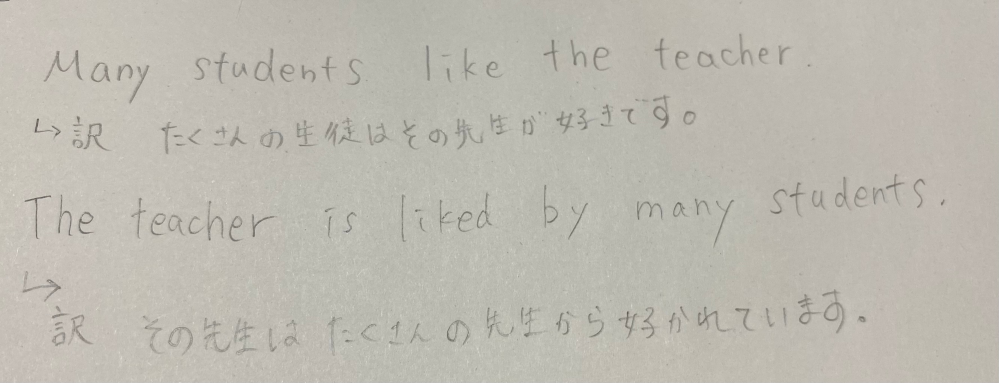 Many students like the teacher.
↳訳 たくさんの生徒はその先生が好きです。
The teacher is liked by many students.
↳
訳 その先生はたくさんの先生から好かれています。